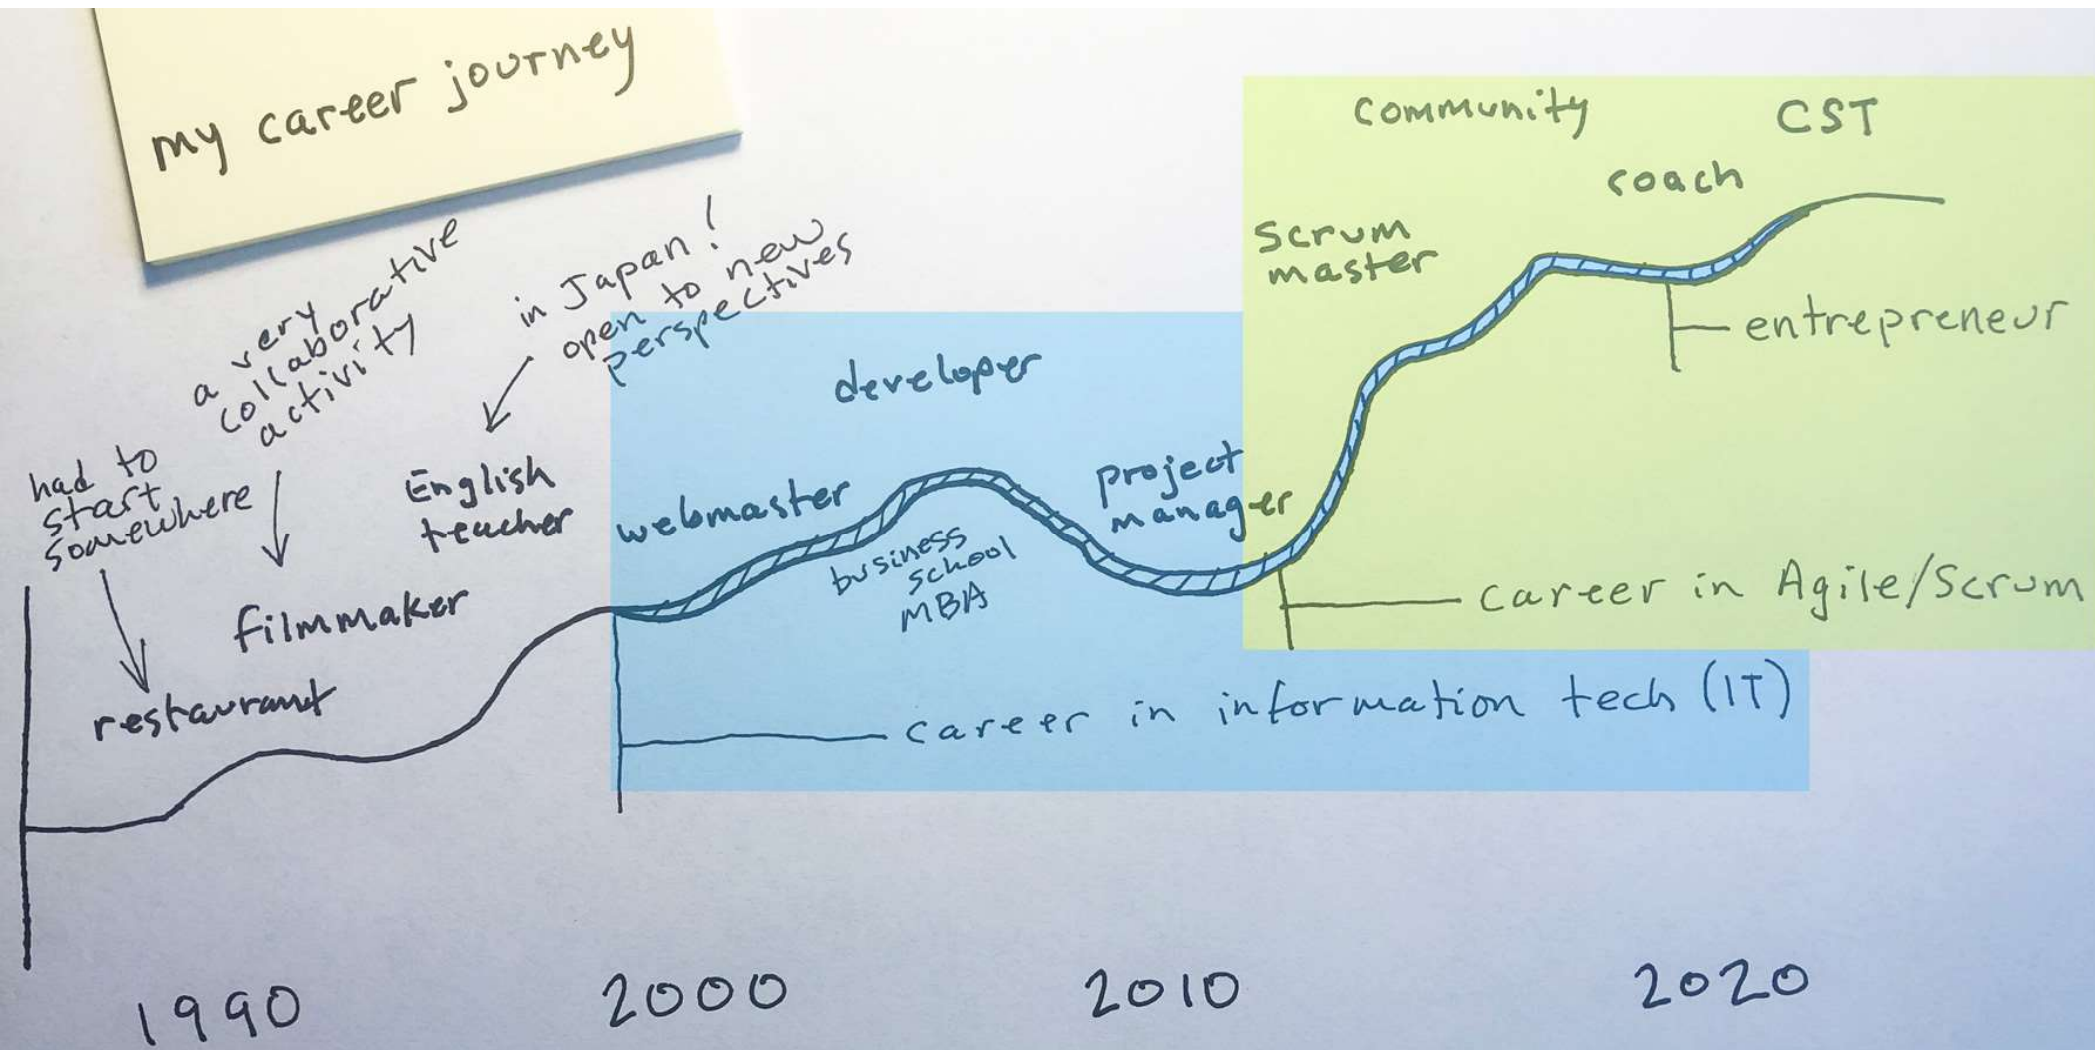 my career journey
had to
start
somewhere
restaurant
a very
collaborative
activity
filmmaker
in Japan!
open to new
perspectives
English
teacher
webmaster
developer
business
school
MBA
project
manager
career in information tech (IT)
scrum
master
community
coach
CST
entrepreneur
career in Agile/Scrum
1990
2000
2010
2020